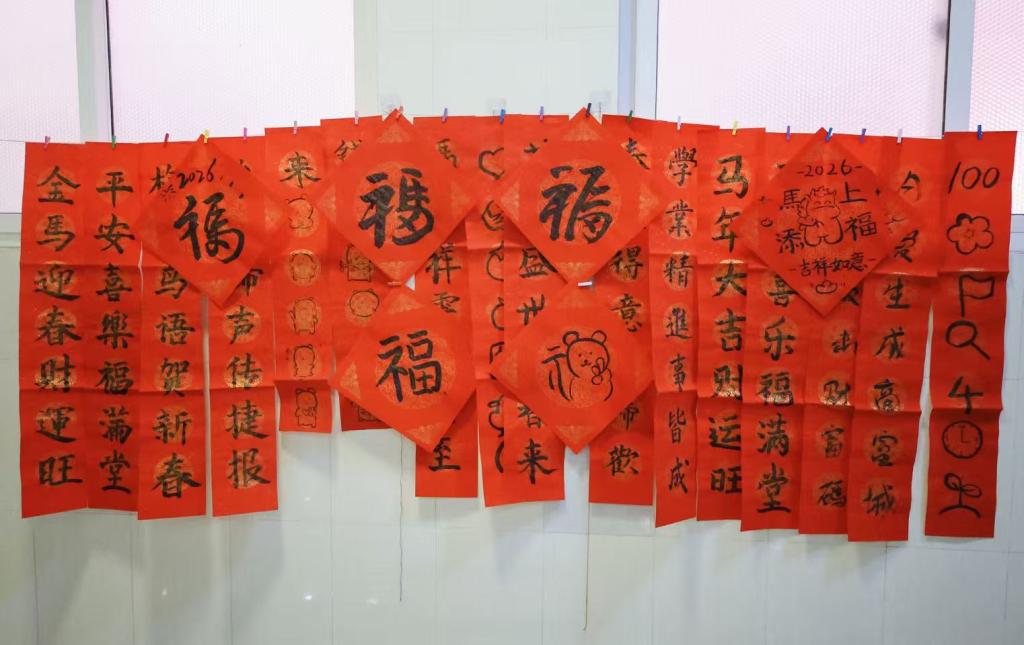 金馬迎春財運旺
平安喜樂福滿堂
鸟语贺新春
2026
福
声传捷报
来
福
福
马
祥
至
盛世
来
福
得意
歡
學業精進事皆成
马年大吉财运旺
喜乐福满堂
-2026-
馬上添福
-吉祥如意-
财富
生成高
城
100
4